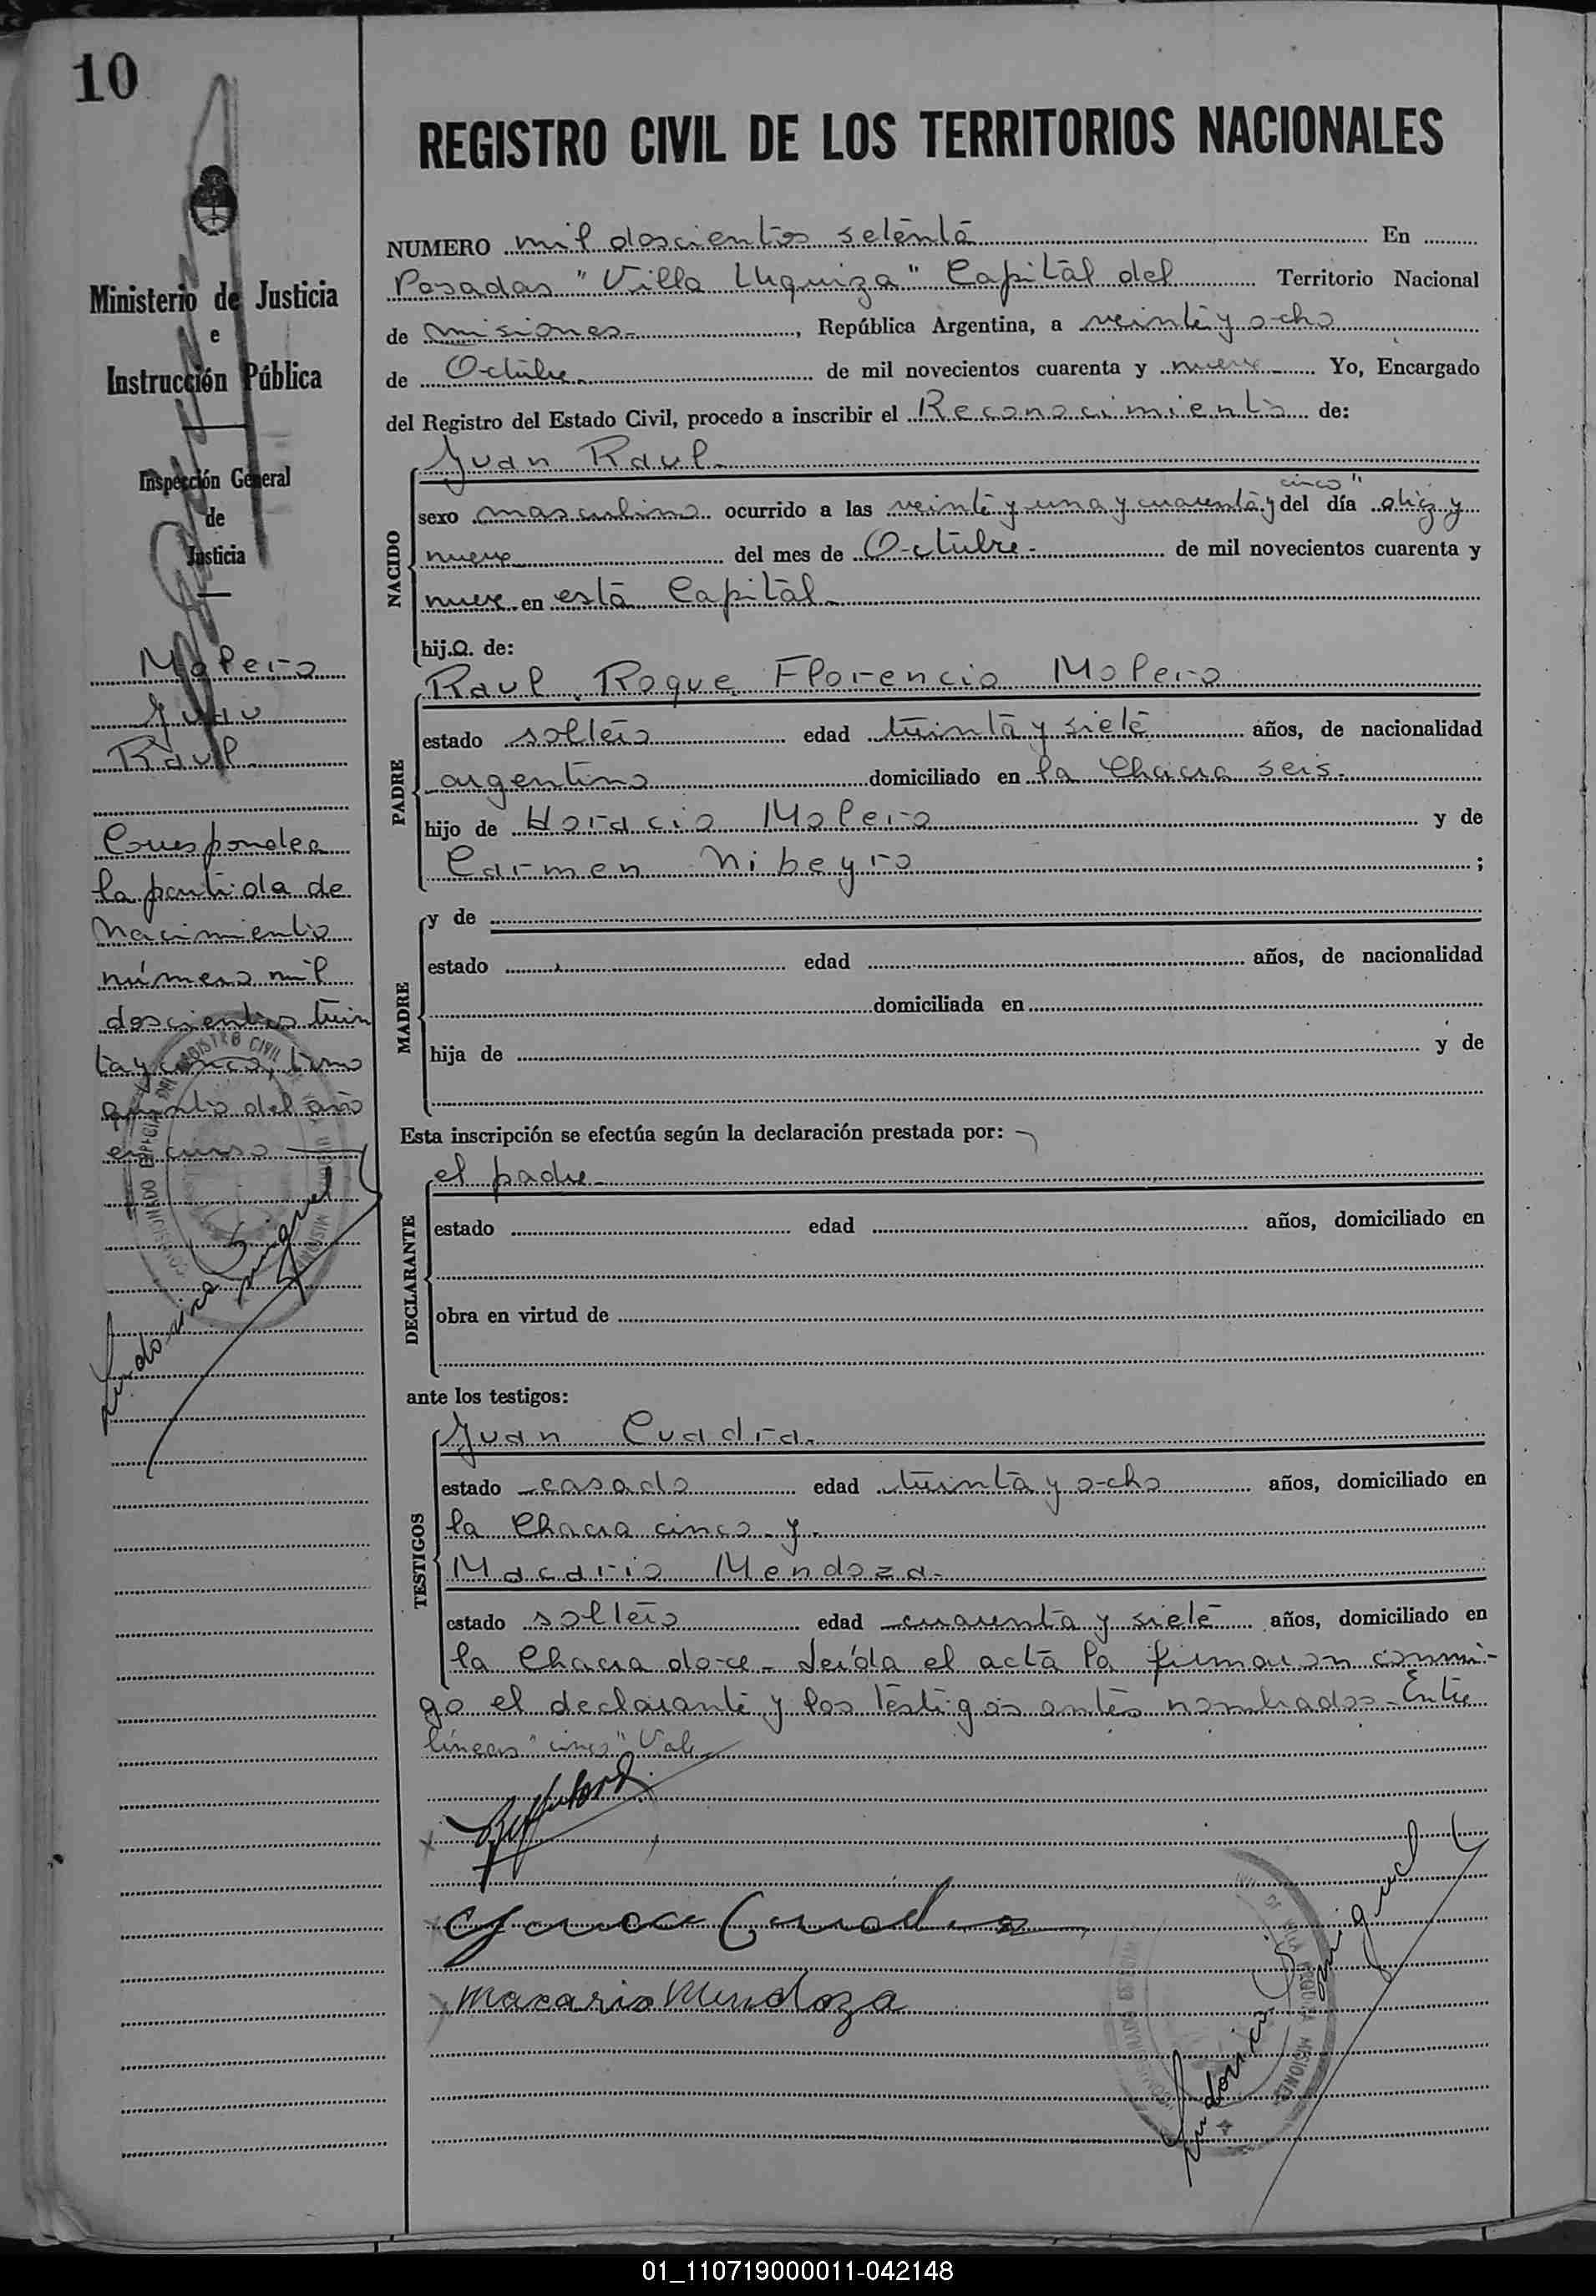 10
REGISTRO CIVIL DE LOS TERRITORIOS NACIONALES
Ministerio de Justicia
e
Instrucción Pública
Inspección General
de
Justicia
Molero
Juan
Raul.
Corresponde a
la partida de
Nacimiento
número mil
doscientos trein
ta y cinco, tomo
del año
en curso
NUMERO mil doscientos setenta En
Posadas "Villa Urquiza" Capital del Territorio Nacional
de misiones-, República Argentina, a veinte y ocho
de Octubre- de mil novecientos cuarenta y nueve- Yo, Encargado
del Registro del Estado Civil, procedo a inscribir el Reconocimiento de:
Juan Raul-
cinco"
NACIDO
sexo masculino ocurrido a las veinte y una y cuarenta y del día diez y
nueve del mes de Octubre- de mil novecientos cuarenta y
nueve en esta Capital-
hij.o. de:
PADRE
Raul Roque Florencio Molero
estado soltero edad treinta y siete años, de nacionalidad
argentino domiciliado en la Chacra seis.
hijo de Horacio Molero y de
Carmen Nibeyro ;
MADRE
y de
estado edad años, de nacionalidad
domiciliada en
hija de y de
Esta inscripción se efectúa según la declaración prestada por:
DECLARANTE
el padre-
estado edad años, domiciliado en
obra en virtud de
ante los testigos:
TESTIGOS
Juan Cuadra.
estado casado edad treinta y ocho años, domiciliado en
la Chacra cinco- y.
Macario Mendoza.
estado soltero edad cuarenta y siete años, domiciliado en
la Chacra doce- Leída el acta la firmaron conmi-
go el declarante y los testigos antes nombrados- Entre
líneas "cinco" Vale
Juan Cuadra
Macario Mendoza
01_110719000011-042148